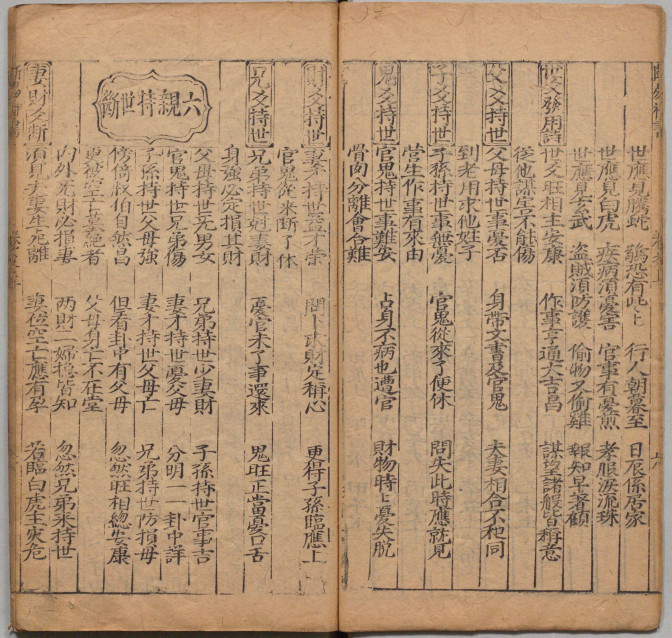 世應見騰蛇 驚恐有此上 行人朝暮至 日辰係居家
世應見白虎 疾病須憂害 官事有憂煎 孝服淚流珠
世應見玄武 盜賊須防護 偷物又偷雞 報知早著顧
世爻發用詩
世爻旺相主安康 作事亨通大吉昌 謀望諸般皆稱意
從他謀害不能傷
父爻持世
父母持世事憂否 身帶文書及官鬼 夫妻相合不和同
到老用求他姓子
子爻持世
子孫持世事無憂 官鬼從來了便休 問失此時應就見
營生作事有來由
鬼爻持世
官鬼持世事難安 占身不病也遭官 財物時上憂失脫
骨肉分離會合難
財爻持世
妻才持世益才榮 問卜求財定稱心 更得子孫臨應上
官鬼從來斷了休
兄爻持世
兄弟持世尅妻財 憂官未了事還來 鬼旺正當憂口舌
身強必定損其財
六親持世斷
父母持世尅男女 兄弟持世少妻財 子孫持世官事吉
官鬼持世兄弟傷 妻才持世憂父母 分明一一卦中詳
子孫持世父母強 妻才持世父母亡 兄弟持世防損母
傍傍叔伯自然昌 但看卦中有父母 忽然旺相總安康
更被空亡墓絕者 父母身亡不在堂
妻財爻斷
內外无財必損妻 兩財一婦總皆知 忽然兄弟來持世
須見夫妻生死離 妻夜空亡應有孕 若臨白虎主災危